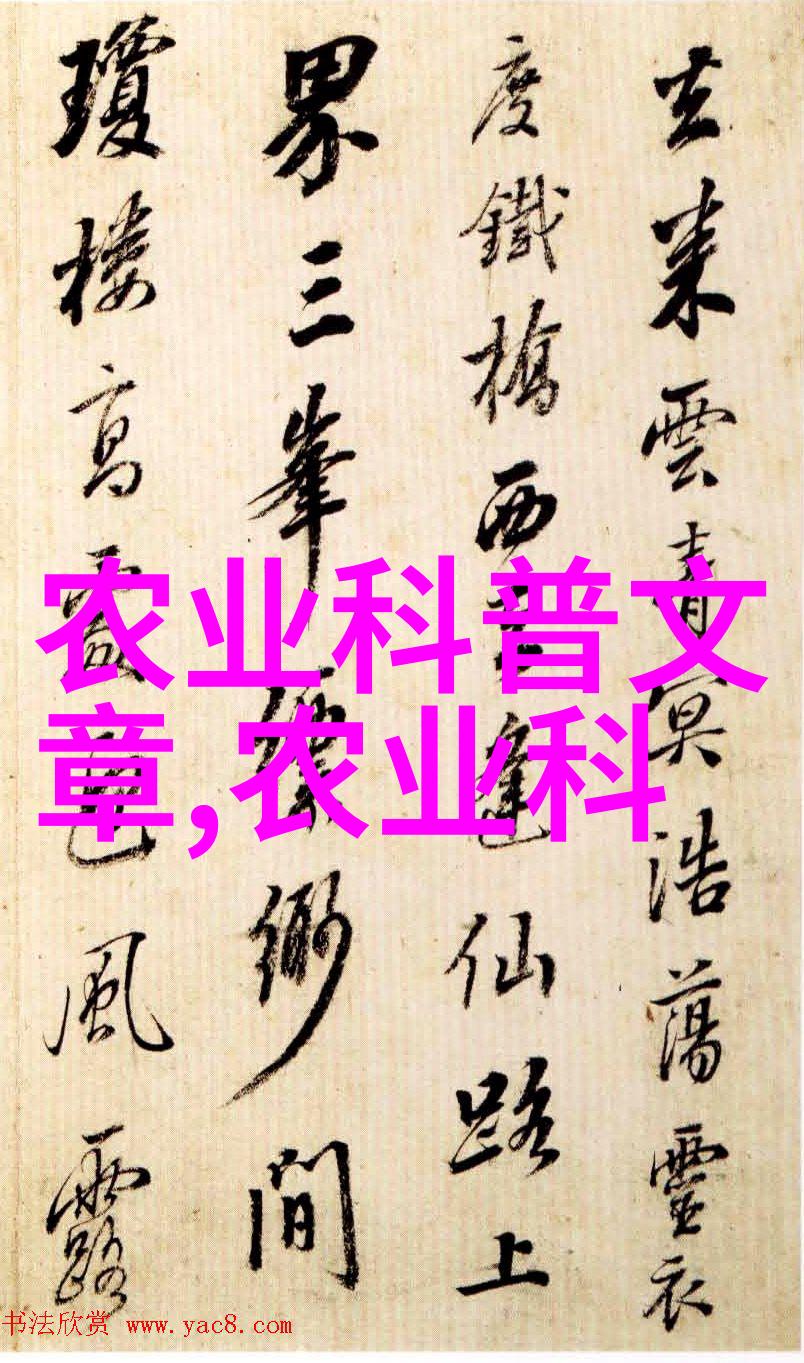 去来雲青冥浩蕩靈衣
度鐵橋西仙路上
界三峯緲間
瓊樓高處風露
农业科普文
章,农业科
书法欣赏 www.yac8.com